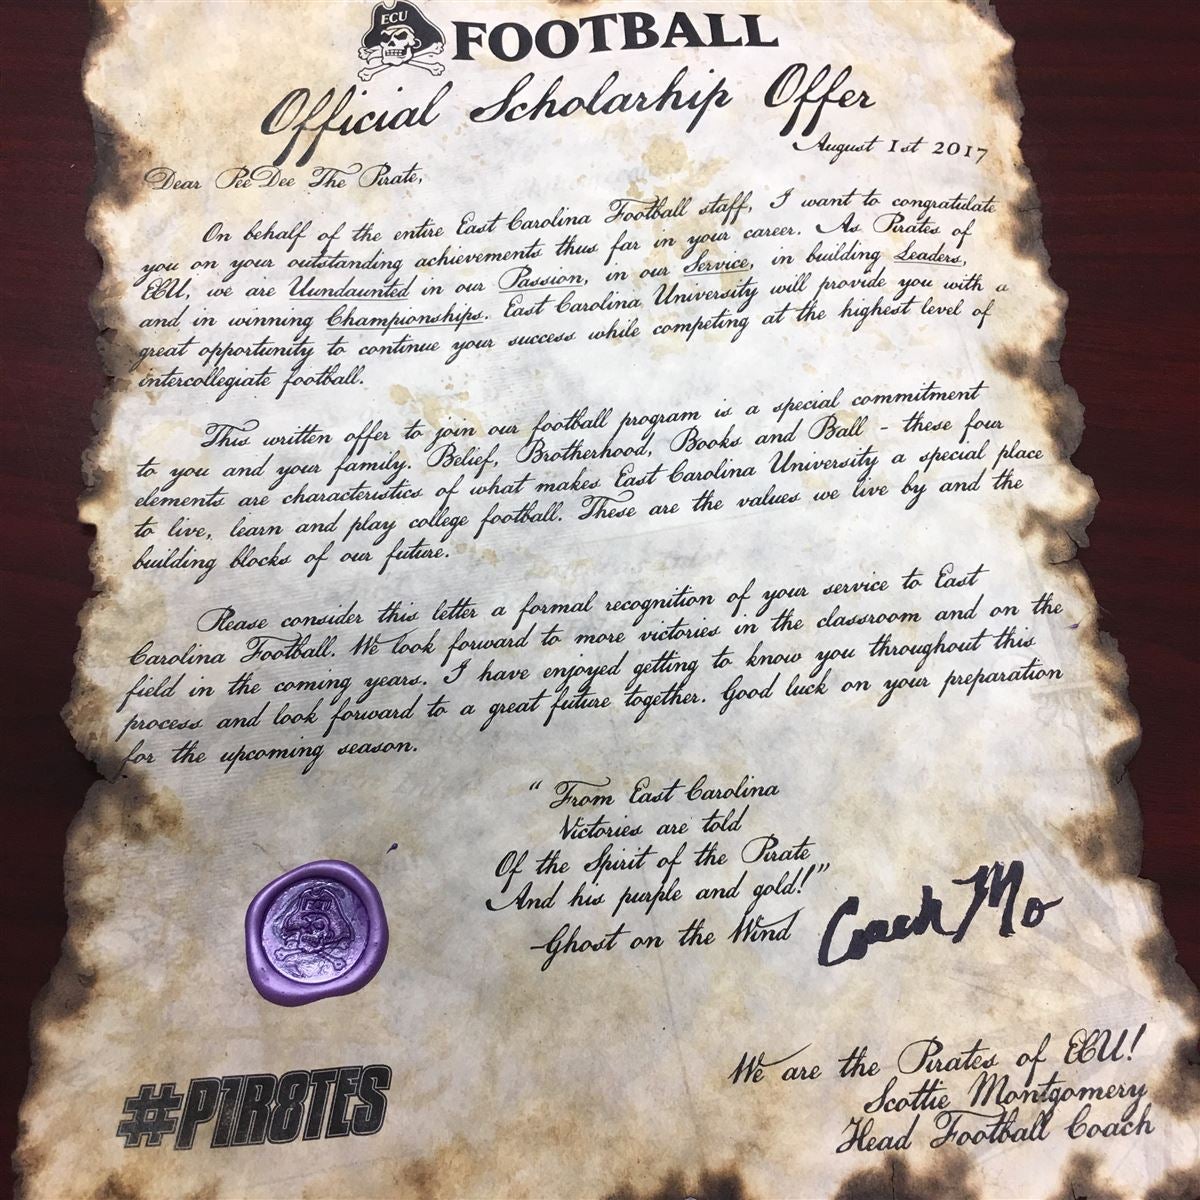 ECU
FOOTBALL
Official Scholarhip Offer
August 1st 2017
Dear PeeDee The Pirate,
On behalf of the entire East Carolina Football staff, I want to congratulate
you on your outstanding achievements thus far in your career. As Pirates of
ECU, we are Uundaunted in our Passion, in our Service, in building Leaders,
and in winning Championships. East Carolina University will provide you with a
great opportunity to continue your success while competing at the highest level of
intercollegiate football.
This written offer to join our football program is a special commitment
to you and your family. Belief, Brotherhood, Books and Ball - these four
elements are characteristics of what makes East Carolina University a special place
to live, learn and play college football. These are the values we live by and the
building blocks of our future.
Please consider this letter a formal recognition of your service to East
Carolina Football. We look forward to more victories in the classroom and on the
field in the coming years. I have enjoyed getting to know you throughout this
process and look forward to a great future together. Good luck on your preparation
for the upcoming season.
"From East Carolina
Victories are told
Of the Spirit of the Pirate
And his purple and gold!"
-Ghost on the Wind
Coach Mo
ECU
#P1R8TES
We are the Pirates of ECU!
Scottie Montgomery
Head Football Coach